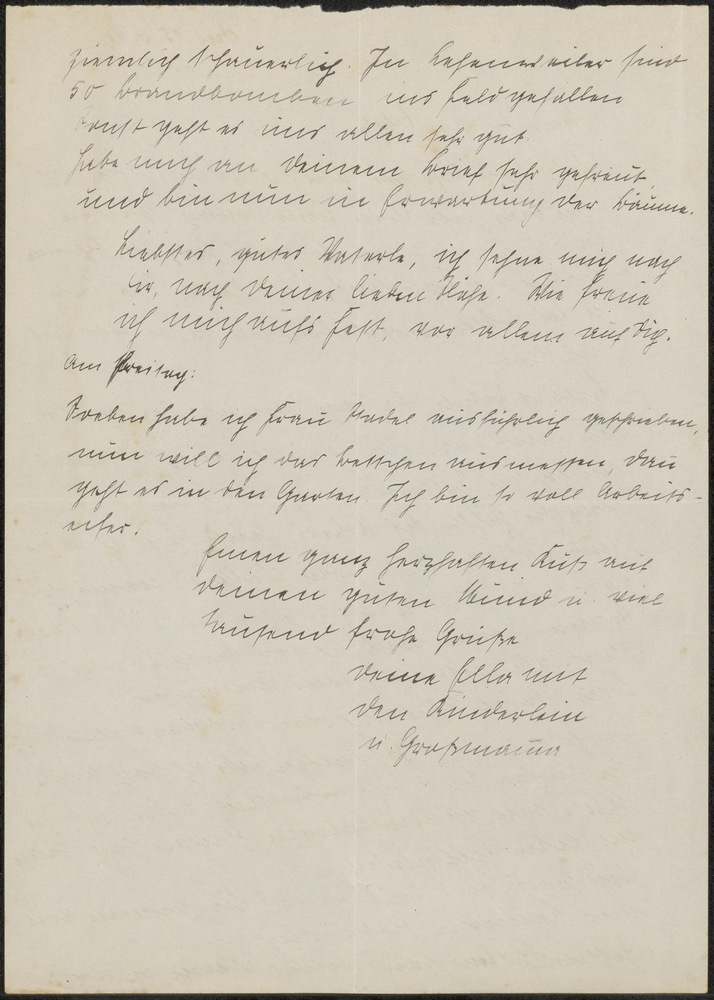 ziemlich schauerlich. In Lehenweiler sind
50 Brandbomben ins Feld gefallen
Sonst geht es uns allen sehr gut.
Habe mich an Deinem Brief sehr gefreut
und bin nun in Erwartung der Bäume.
Liebstes, gutes Vaterle, ich sehne mich nach
Dir, nach Deiner lieben Nähe. Wie freue
ich mich aufs Fest, vor allem auf Dich.
Am Freitag:
Soeben habe ich Frau Nadel ausführlich geschrieben,
nun will ich das Bettchen ausmessen, dann
geht es in den Garten. Ich bin so voll Arbeits-
eifer.
Einen ganz herzhaften Kuß auf
Deinen guten Mund u. viel
tausend frohe Grüße
Deine Ella mit
den Kinderlein
u. Großmama